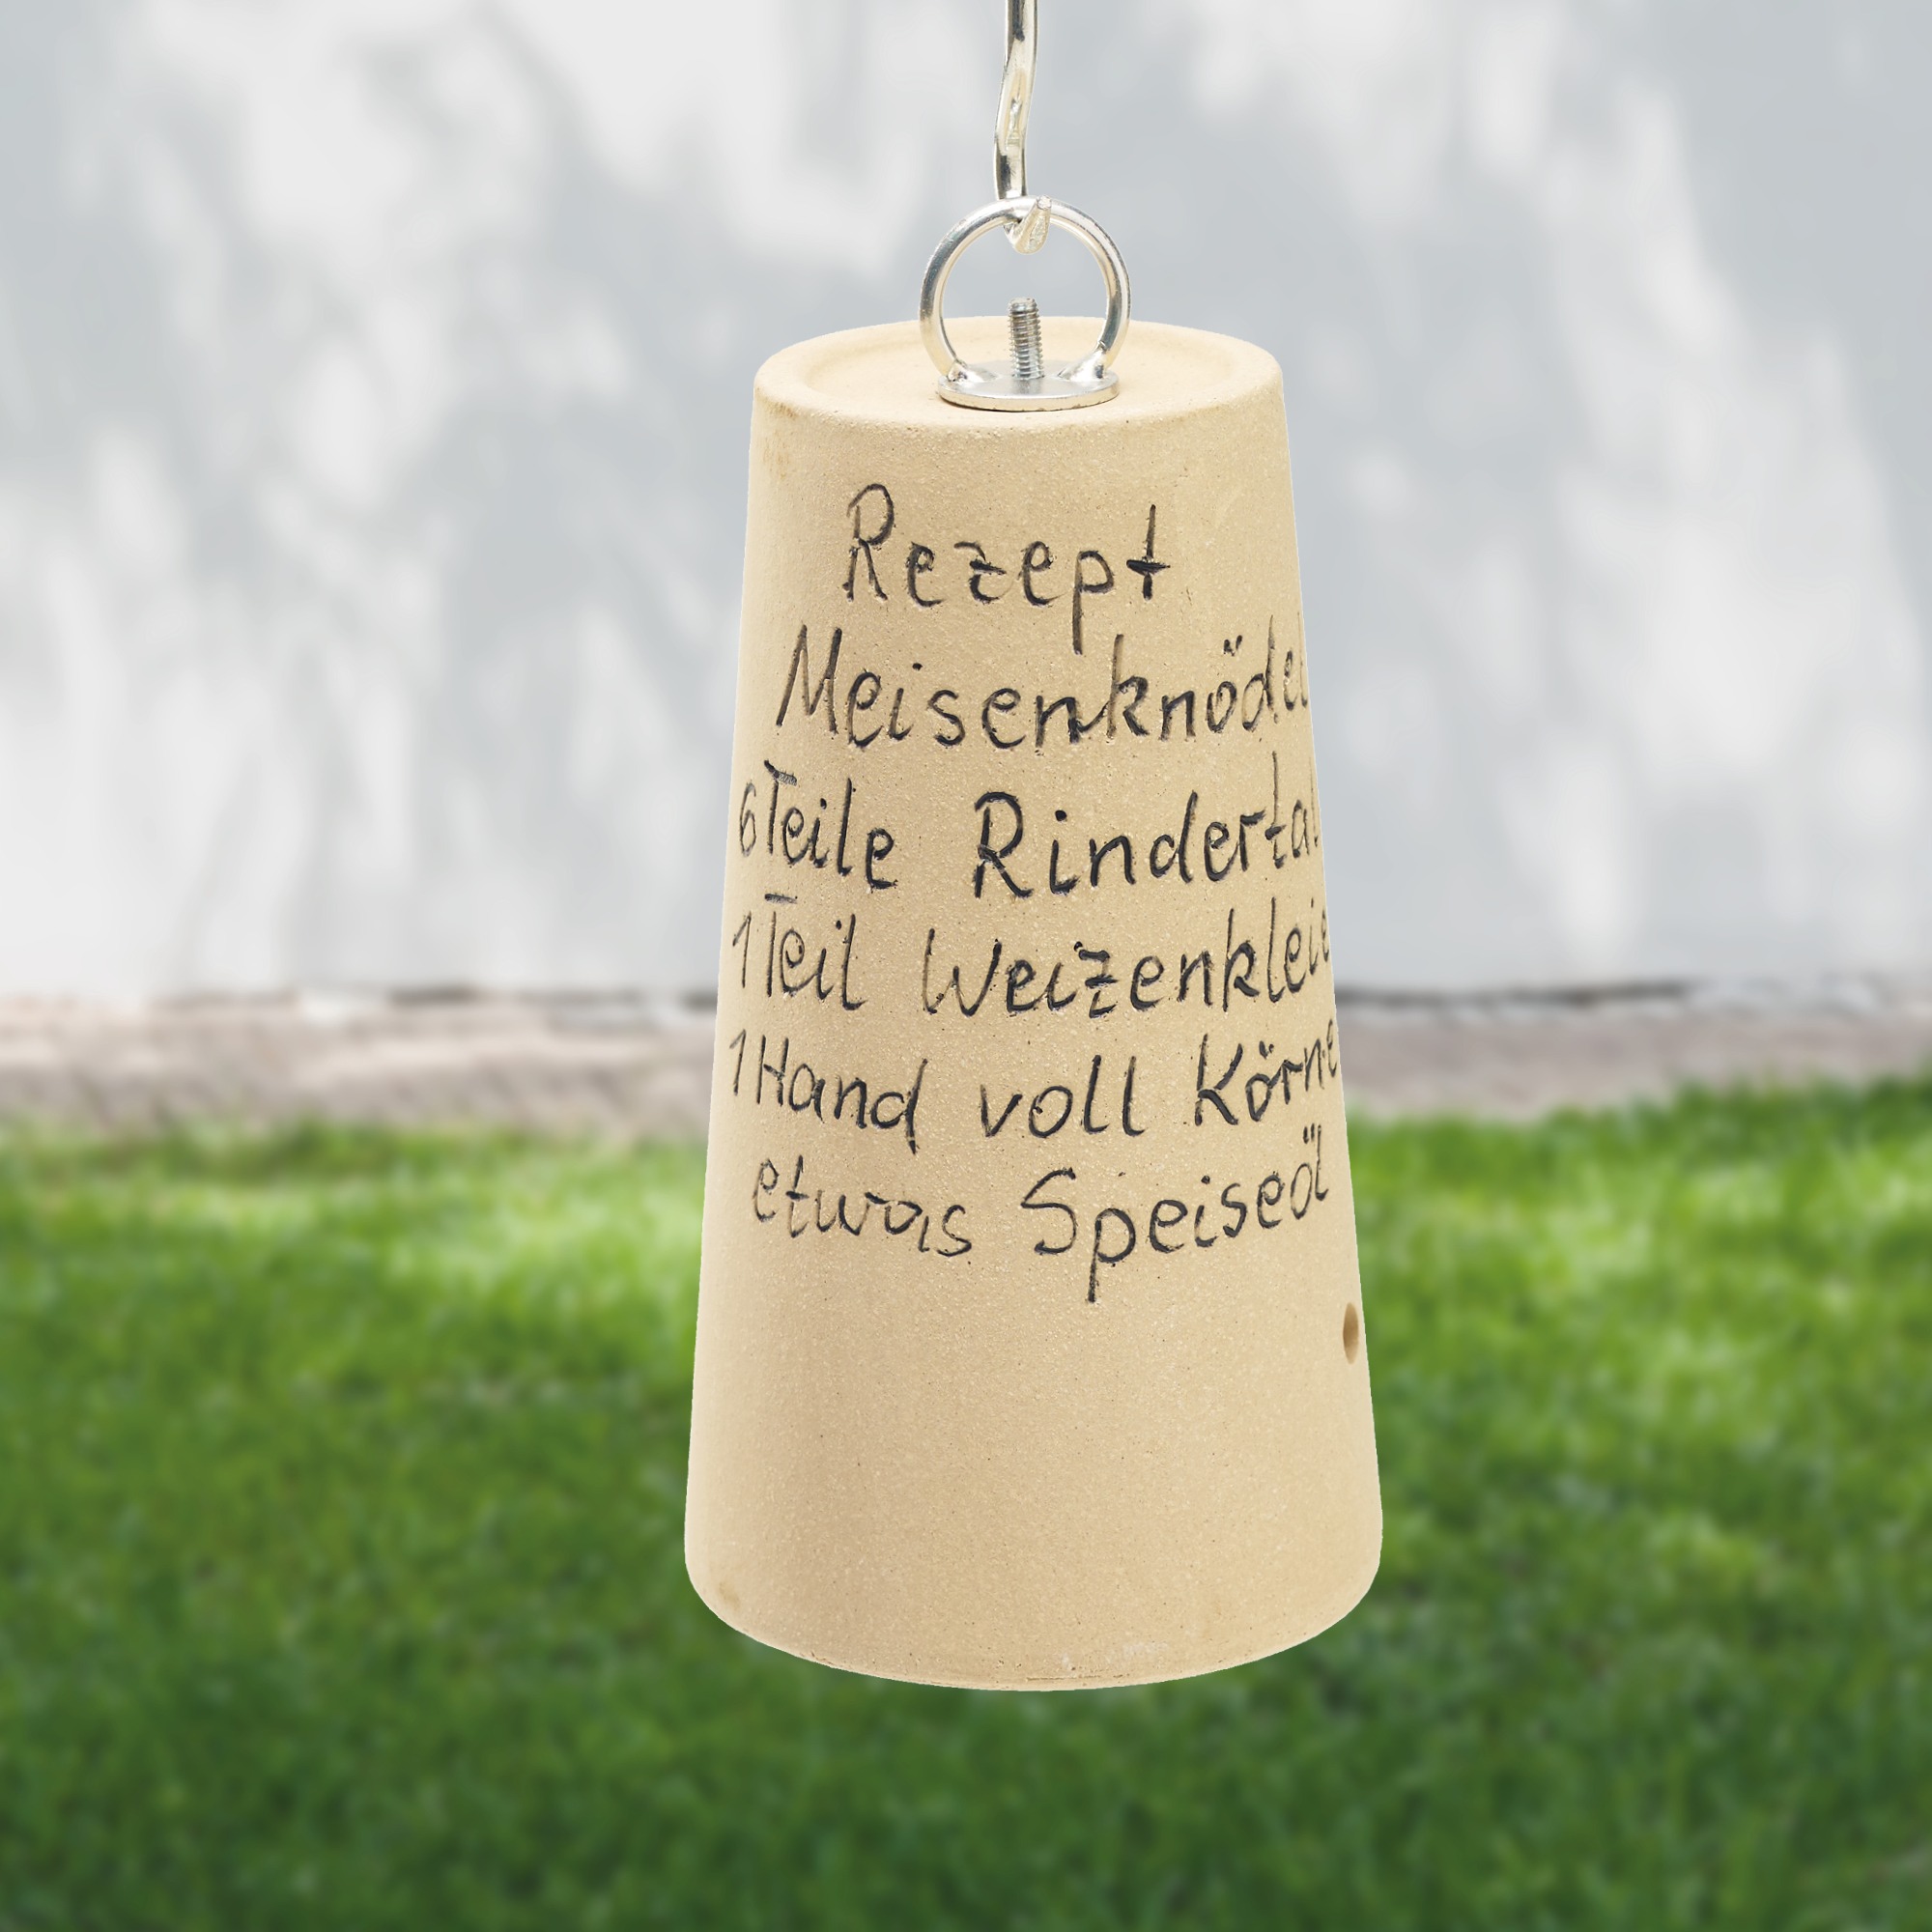 Rezept
Meisenknödel
6 Teile Rindertal
1 Teil Weizenkleie
1 Hand voll Körne
etwas Speiseöl